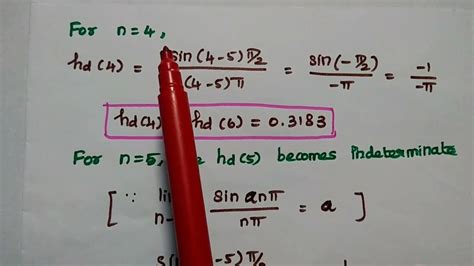 For n=4,
hd(4) = sin(4-5)π/2 / (4-5)π = sin(-π/2) / -π = -1 / -π
hd(4) hd(6) = 0.3183
For n=5, hd(5) becomes Indeterminate
[ ∵ sin anπ / nπ = a ]
-5)π/2